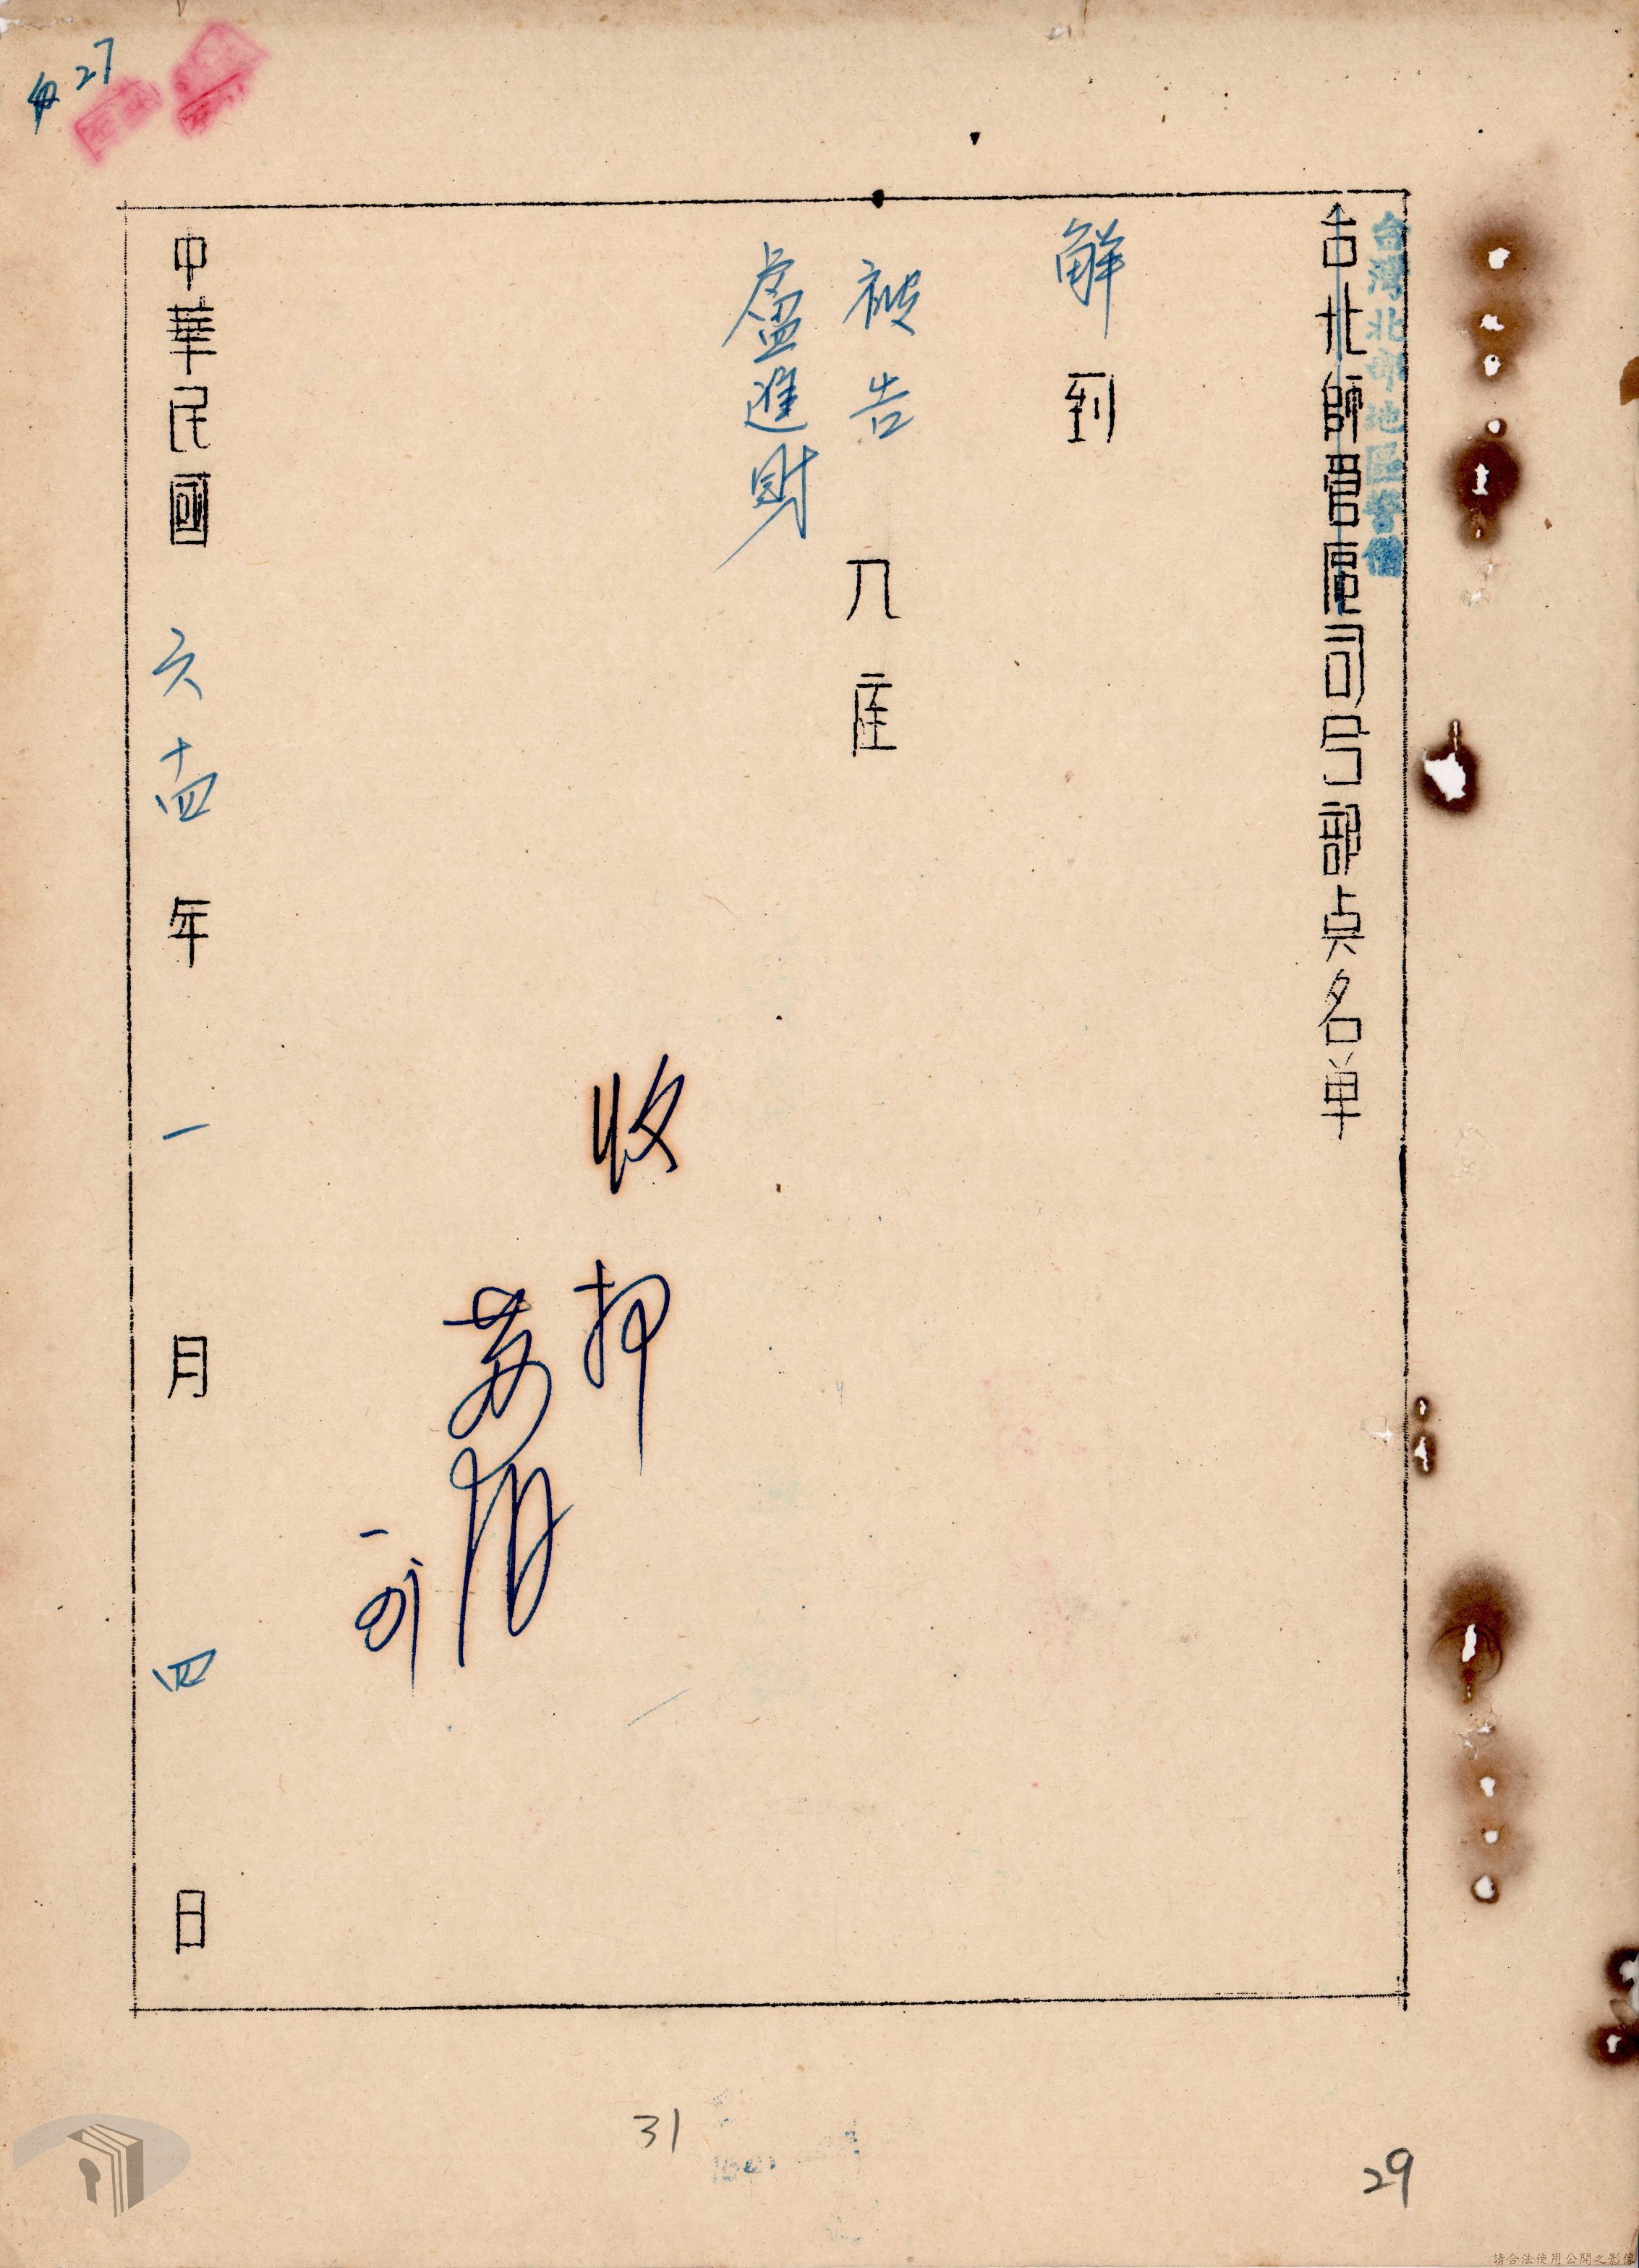 台灣北部地區警備
台北師管區司令部点名单
解到
被告 人 庭
盧進財
收押
中華民國 六十四 年 一 月 四 日
27
31
29
請合法使用公開之影像